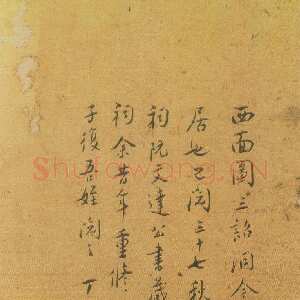 西面圖三詔洞今
居也已閱三十七秋
祠阮文達公書藏
祠余昔年重修
子復吾姪閱之 丁
Shufawang.CN